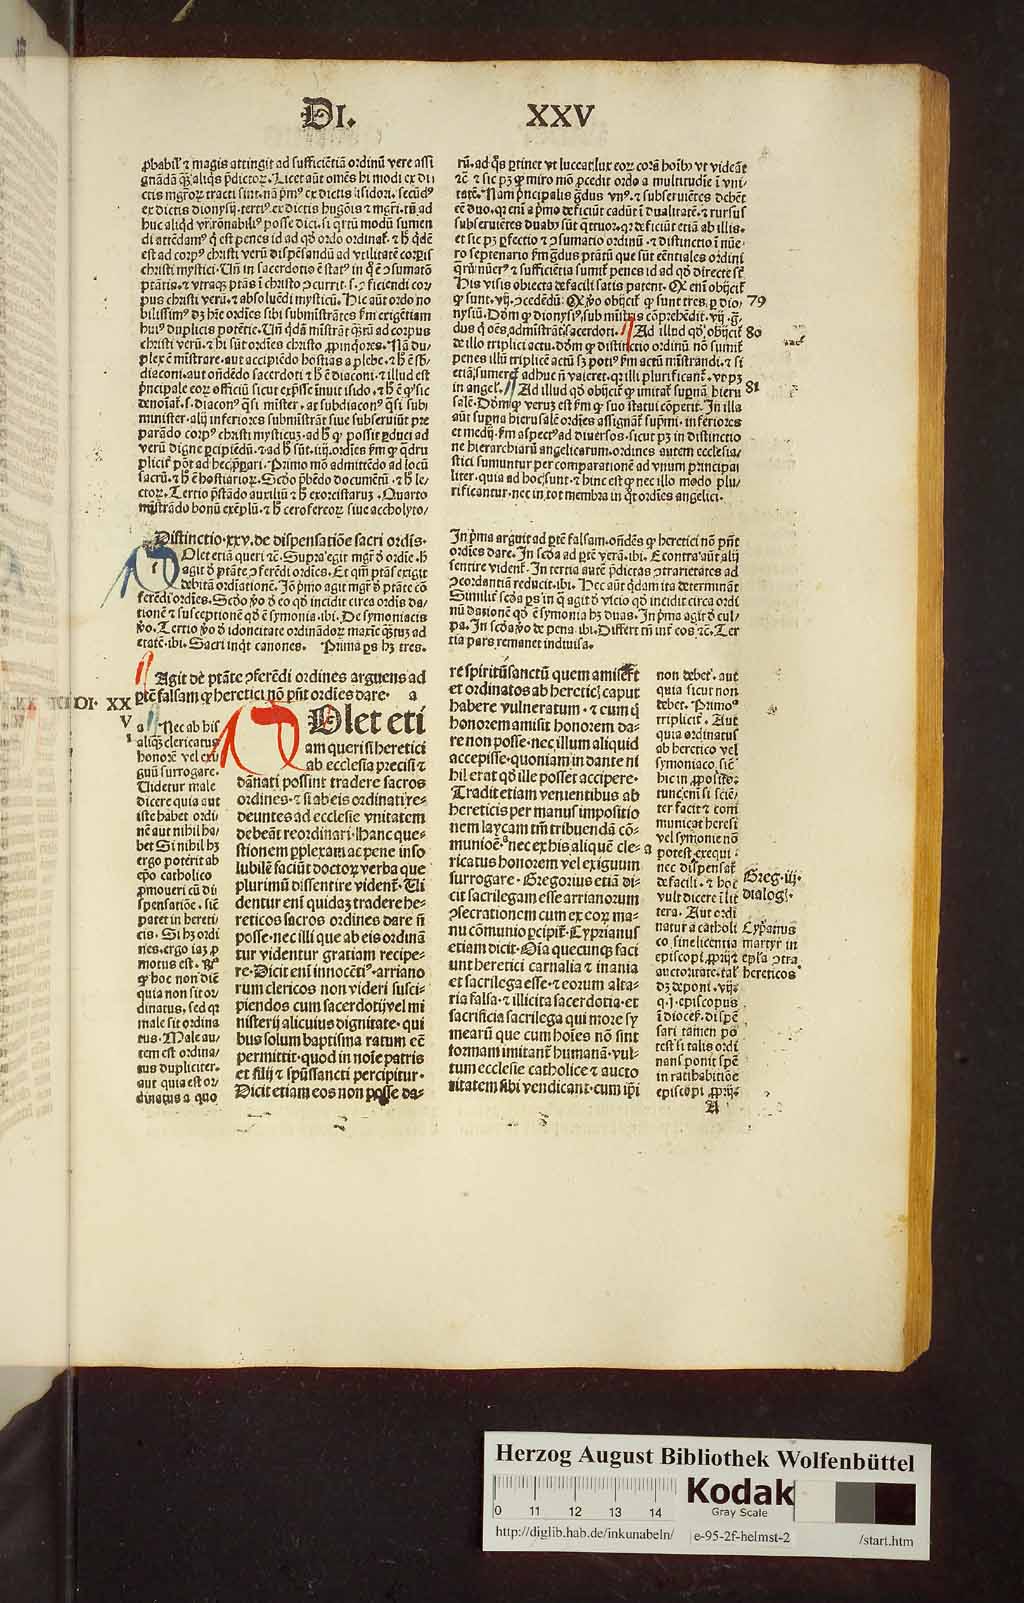 DI. XXV
ꝓbabil' ⁊ magis attingit ad sufficiētiā ordinū vere assi
gnādā qȝ aliqs p̄dictoꝝ. Licet aūt om̄es hi modi ex di
ctis mgr̄oꝝ tracti sint. nā pͥmꝰ ex dictis isidori. secūdꝰ
ex dictis dionysij. tertiꝰ ex dictis hugōis ⁊ mgr̄i. tn̄ ad
est ad corpꝰ christi verū dispēsandū ad vtilitatē corpis
christi mystici. Un̄ in sacerdotio ē statꝰ in q̄ ē ꝯsumatō
ptātis. ⁊ vtraqȝ ptās ī christo ꝯcurrit. s. ꝯficiendi cor
pus christi verū. ⁊ absoluēdi mysticū. Hic aūt ordo no
bilissimꝰ dȝ h̄re ordīes sibi submīstrātes
christi verū ⁊ hi sūt ordīes christo ꝓpinq̄ores. Nā du
plex ē mīstrare. aut accipiēdo hostias a plebe. ⁊ h̄ ē sb
diaconi. aut on̄dēdo sacerdoti ⁊ h̄ ē diaconi. ⁊ illud est
minister. alij inferiores submīstrāt siue subseruiūt pre
parādo corpꝰ christi mysticuȝ. ad h̄ ꝙ possit ꝑduci ad
verū digne ꝑcipiēdū. ⁊ ad h̄ sūt. iiij. ordīes
plicit' pōt ad hec p̄ꝑari. Primo mō admittēdo ad locū
sacrū. ⁊ h̄ ē hostiarioꝝ. Scd̄o p̄bēdo documētū. ⁊ h̄ le
ctoꝝ. Tertio p̄stādo auxiliū ⁊ h̄ exorcistaruȝ. Quarto
mīstrādo bonū exēplū. ⁊ h̄ ceroferēor siue accholyto
rū. ad q̄s ꝑtinet vt luceat lux eoꝝ corā hoībꝰ vt videāt
⁊c̄. ⁊ sic pȝ ꝙ miro mō ꝓcedit ordo a multitudīe ī vni
tatē. Nam pͥncipalis gͣdus vnꝰ. ⁊ subseruiētes debēt
eē duo. qꝛ eni a pͥmo deficiūt cadūt ī dualitatē. ⁊ rursus
subseruiētes duabꝰ sūt q̄ttuor. qꝛ deficiūt etiā ab illis.
et sic pȝ ꝑfectio ⁊ ꝯsumatio ordinū. ⁊ distinctio ī nūe
His visis obiecta de facili satis patent.
79
80
81
penes illū triplicē actū
in angel'. Ad illud qd̄ obijcit' ꝙ imitat' supnā hieru
aūt supna hierusalē ordīes assignāt' supmi. inferiores
ne hierarchiarū angelicarum. ordines autem ecclesia
stici sumuntur per comparationē ad vnum principa
liter. quia ad hoc sunt. ⁊ hinc est ꝙ nec illo modo plu
rificantur. nec in tot membra in q̄t ordīes angelici.
Distinctio. xxv. de dispensatiōe sacri ordīs.
Olet etiā queri ⁊c̄. Supra egit mgr̄ d' ordīe. h̄
agit d' ptāte ꝯferēdi ordīes. Et qm̄ ptās exigit
debitā ordīationē. Iō pͥmo agit mgr̄ d' ptāte cō
ferēdi ordīes. Scd̄o v̄o d' eo qd̄ incidit circa ordīs da
tionē ⁊ susceptionē qd̄ ē symonia. ibi. De symoniacis
v̄o. Tertio v̄o d' idoneitate ordinādoꝝ maxīe q̄ȝtuȝ ad
etatē. ibi. Sacri inq̄t canones. Prima ps hȝ tres.
In pͥma arguit ad ptē falsam. on̄dēs ꝙ heretici nō pn̄t
ordīes dare. In scd̄a ad ptē verā. ibi. E contra aūt alij
sentire videnť. In tertia autē p̄dictas ꝯtrarietates ad
ꝯcordantiā reducit. ibi. Hec aūt qdam ita determināt
Similit' scd̄a ps in q̄ agit d' vicio qd̄ incidit circa ordi
nū dationē qd̄ ē symonia hȝ duas. In pͥma agit d' cul
pa. In scd̄a v̄o de pena. ibi. Differt tn̄ int' eos ⁊c̄. Ter
tia pars remanet indiuisa.
Agit de ptāte ꝯferēdi ordines arguens ad
ptē falsam ꝙ heretici nō pn̄t ordīes dare. a
DI. XX
V
a Nec ab his
aliqȝ clericatus
honorē vel exi
guū surrogare.
Uidetur male
dicere quia aut
iste habet ordi
nē aut nihil ha
bet Si nihil hȝ
ergo poterit ab
ep̄o catholico
ꝓmoueri cū di
spensatiōe. sic̄
patet in hereti
cis. Si hȝ ordi
nes. ergo iaȝ ꝓ
motus est.
ꝙ hoc non dic̄
quia non sit or
dinatus. sed qꝛ
male sit ordina
tus. Male au
tem est ordina
tus dupliciter.
aut quia est or
dinatus a quo
Olet eti
am queri si heretici
ab ecclesia precisi ⁊
dānati possint tradere sacros
ordines. ⁊ si ab eis ordinati re
deuntes ad ecclesie vnitatem
debeāt reordinari. Hanc que
stionem ꝑplexam ac pene inso
lubilē faciūt doctoꝝ verba que
plurimū dissentire videnť. Ui
dentur eni quidaȝ tradere he
reticos sacros ordines dare n̄
posse. nec illi que ab eis ordinā
tur videntur gratiam recipe
re. Dicit eni innocētiꝰ. arriano
rum clericos non videri susci
piendos cum sacerdotij vel mi
nisterij alicuius dignitate. qui
bus solum baptisma ratum eē
permittit. quod in noīe patris
et filij ⁊ spūssancti percipitur.
Dicit etiam eos non posse da
re spiritūsanctū quem amiserūt
et ordinatos ab hereticis caput
habere vulneratum. ⁊ cum qͥ
honorem amisit honorem da
re non posse. nec illum aliquid
accepisse. quoniam in dante ni
hil erat qd̄ ille posset accipere.
Tradit etiam venientibus ab
hereticis per manus impositio
nem laycam tm̄ tribuendā cō
munioē. nec ex his aliquē cle
ricatus honorem vel exiguum
surrogare. Gregorius etiā di
cit sacrilegam esse arrianorum
ꝯsecrationem cum ex eoꝝ ma
nu cōmunio ꝑcipit'. Cyprianus
etiam dicit. Oīa quecunqȝ faci
unt heretici carnalia ⁊ inania
et sacrilega esse. ⁊ eorum alta
ria falsa. ⁊ illicita sacerdotia. et
sacrificia sacrilega qui more sy
mearū que cum hoīes nō sint
formam imitanť humanā. vul
tum ecclesie catholice ⁊ aucto
ritatem sibi vendicant. cum ip̄i
a
non debet. aut
quia sicut non
debet. Primoꝰ
triplicit'. Aut
quia ordinatus
ab heretico vel
symoniaco. sic̄
hic in ꝓposito.
tunc em̄ si sciē
ter facit ⁊ com
municat heresi
vel symonie nō
potest exequi.
nec dispensat'
de facili. ⁊ hoc
vult dicere ī lit
tera. Aut ordi
natur a catholi
co. sine licentia
episcopi ꝓprij ⁊
auctoritate. tal'
dȝ deponi. vij.
q. j. episcopus
ī diocef. dispē
sari tamen po
test si talis ordi
nans ponit spē
in ratihabitiōe
episcopi ꝓprij.
Greg. iij.
dialog.
Cyp̄anus
martyr in
ep̄la ꝯtra
hereticos
A
Herzog August Bibliothek Wolfenbüttel
0 11 12 13 14
Kodak
Gray Scale
http://diglib.hab.de/inkunabeln/ e-95-2f-helmst-2 /start.htm